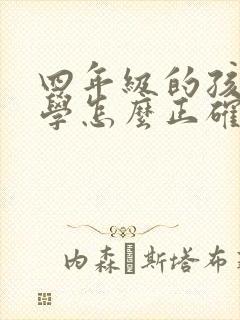 四年級的孩
學怎麼正確
内森·斯塔布